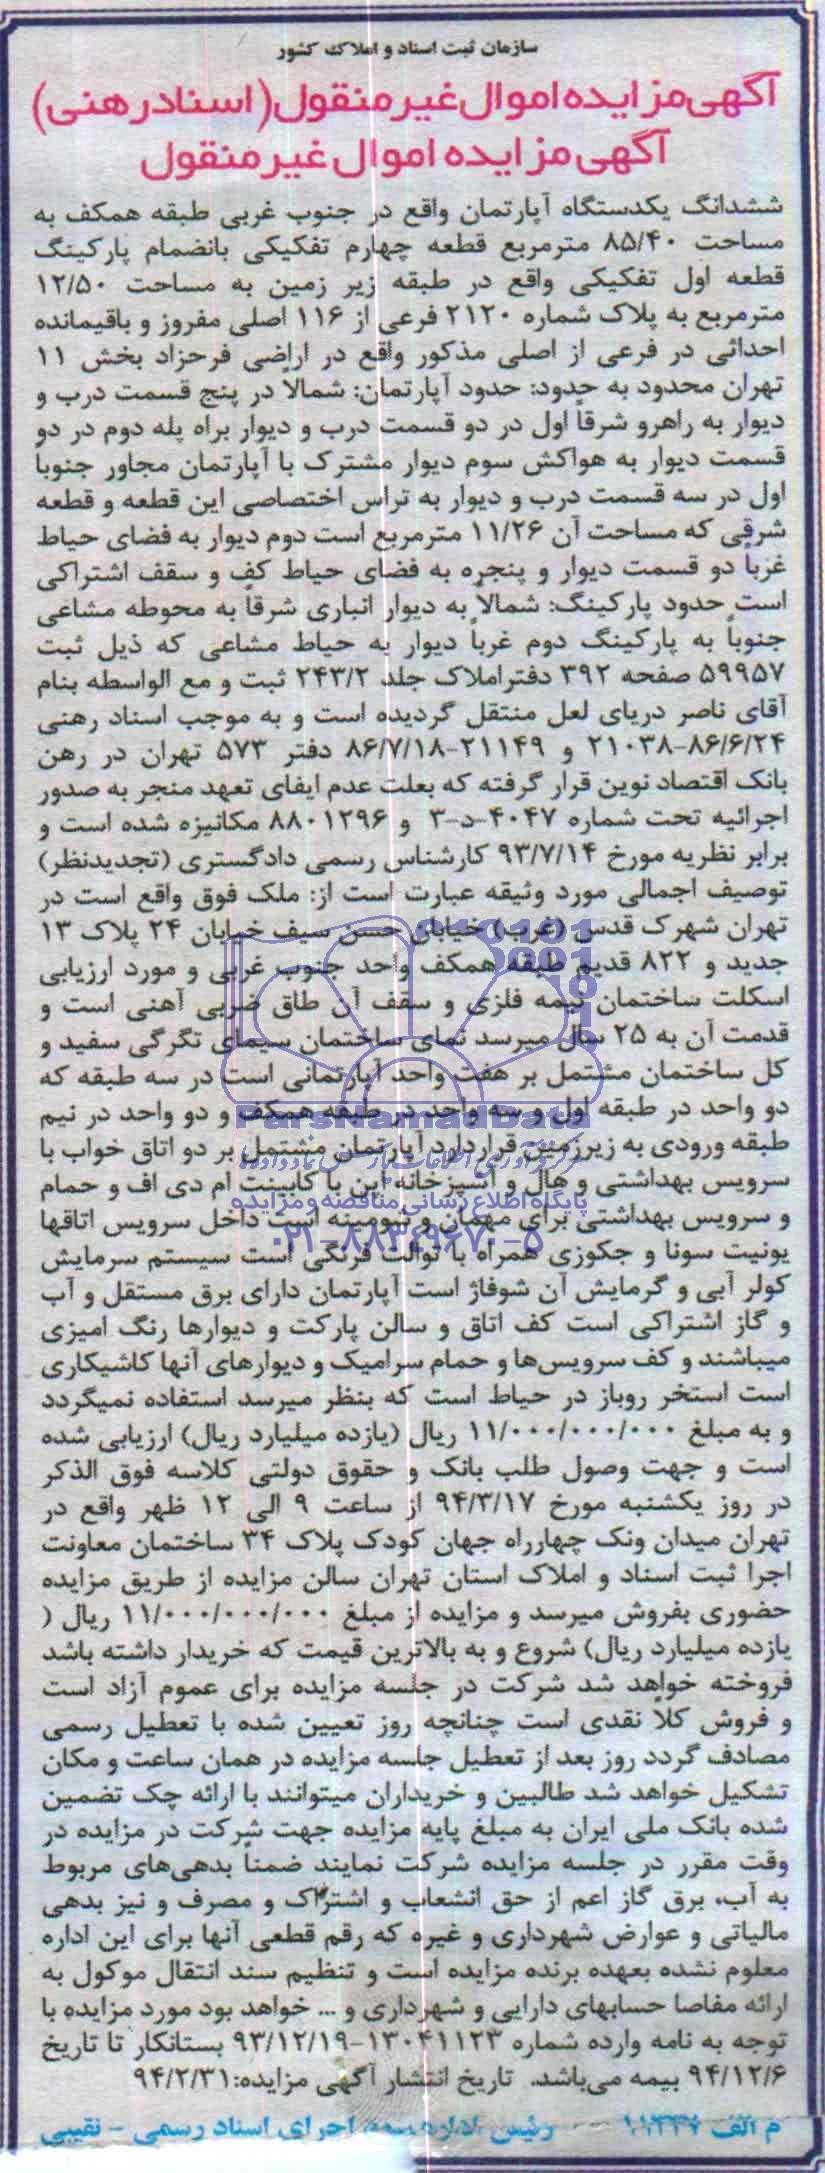 سازمان ثبت اسناد و املاک کشور
آگهی مزایده اموال غیر منقول (اسناد رهنی)
آگهی مزایده اموال غیر منقول
ششدانگ یکدستگاه آپارتمان واقع در جنوب غربی طبقه همکف به
مساحت ۸۵/۴۰ مترمربع قطعه چهارم تفکیکی بانضمام پارکینگ
قطعه اول تفکیکی واقع در طبقه زیر زمین به مساحت ۱۲/۵۰
مترمربع به پلاک شماره ۲۱۲۰ فرعی از ۱۱۶ اصلی مفروز و باقیمانده
احداثی در فرعی از اصلی مذکور واقع در اراضی فرحزاد بخش ۱۱
تهران محدود به حدود: حدود آپارتمان: شمالاً در پنج قسمت درب و
دیوار به راهرو شرقاً اول در دو قسمت درب و دیوار براه پله دوم در دو
قسمت دیوار به هواکش سوم دیوار مشترک با آپارتمان مجاور جنوبا
اول در سه قسمت درب و دیوار به تراس اختصاصی این قطعه و قطعه
شرقی که مساحت آن ۱۱/۲۶ مترمربع است دوم دیوار به فضای حیاط
غرباً دو قسمت دیوار و پنجره به فضای حیاط کف و سقف اشتراکی
است حدود پارکینگ: شمالاً به دیوار انباری شرقاً به محوطه مشاعی
جنوباً به پارکینگ دوم غرباً دیوار به حیاط مشاعی که ذیل ثبت
۵۹۹۵۷ صفحه ۳۹۲ دفتر املاک جلد ۲۴۳/۲ ثبت و مع الواسطه بنام
آقای ناصر دریای لعل منتقل گردیده است و به موجب اسناد رهنی
۲۱۰۳۸-۸۶/۶/۲۴ و ۲۱۱۴۹-۸۶/۷/۱۸ دفتر ۵۷۳ تهران در رهن
بانک اقتصاد نوین قرار گرفته که بعلت عدم ایفای تعهد منجر به صدور
اجرائیه تحت شماره ۴۰۴۷-د-۳ و ۸۸۰۱۲۹۶ مکانیزه شده است و
برابر نظریه مورخ ۹۳/۷/۱۴ کارشناس رسمی دادگستری (تجدیدنظر)
توصیف اجمالی مورد وثیقه عبارت است از: ملک فوق واقع است در
تهران شهرک قدس (غرب) خیابان حسن سیف خیابان ۲۴ پلاک ۱۳
جدید و ۸۲۲ قدیم طبقه همکف واحد جنوب غربی و مورد ارزیابی
اسکلت ساختمان نیمه فلزی و سقف آن طاق ضربی آهنی است و
قدمت آن به ۲۵ سال میرسد نمای ساختمان سیمای تگرگی سفید و
کل ساختمان مشتمل بر هفت واحد آپارتمانی است در سه طبقه که
دو واحد در طبقه اول و سه واحد در طبقه همکف و دو واحد در نیم
طبقه ورودی به زیرزمین قرار دارد آپارتمان مشتمل بر دو اتاق خواب با
سرویس بهداشتی و هال و آشپزخانه اپن با کابینت ام دی اف و حمام
و سرویس بهداشتی برای مهمان و شومینه است داخل سرویس اتاقها
یونیت سونا و جکوزی همراه با توالت فرنگی است سیستم سرمایش
کولر آبی و گرمایش آن شوفاژ است آپارتمان دارای برق مستقل و آب
و گاز اشتراکی است کف اتاق و سالن پارکت و دیوارها رنگ امیزی
میباشند و کف سرویس‌ها و حمام سرامیک و دیوارهای آنها کاشیکاری
است استخر روباز در حیاط است که بنظر میرسد استفاده نمیگردد
و به مبلغ ۱۱/۰۰۰/۰۰۰/۰۰۰ ریال (یازده میلیارد ریال) ارزیابی شده
است و جهت وصول طلب بانک و حقوق دولتی کلاسه فوق الذکر
در روز یکشنبه مورخ ۹۴/۳/۱۷ از ساعت ۹ الی ۱۲ ظهر واقع در
تهران میدان ونک چهارراه جهان کودک پلاک ۳۴ ساختمان معاونت
اجرا ثبت اسناد و املاک استان تهران سالن مزایده از طریق مزایده
حضوری بفروش میرسد و مزایده از مبلغ ۱۱/۰۰۰/۰۰۰/۰۰۰ ریال (
یازده میلیارد ریال) شروع و به بالاترین قیمت که خریدار داشته باشد
فروخته خواهد شد شرکت در جلسه مزایده برای عموم آزاد است
و فروش کلاً نقدی است چنانچه روز تعیین شده با تعطیل رسمی
مصادف گردد روز بعد از تعطیل جلسه مزایده در همان ساعت و مکان
تشکیل خواهد شد طالبین و خریداران میتوانند با ارائه چک تضمین
شده بانک ملی ایران به مبلغ پایه مزایده جهت شرکت در مزایده در
وقت مقرر در جلسه مزایده شرکت نمایند ضمناً بدهی‌های مربوط
به آب، برق گاز اعم از حق انشعاب و اشتراک و مصرف و نیز بدهی
مالیاتی و عوارض شهرداری و غیره که رقم قطعی آنها برای این اداره
معلوم نشده بعهده برنده مزایده است و تنظیم سند انتقال موکول به
ارائه مفاصا حسابهای دارایی و شهرداری و ... خواهد بود مورد مزایده با
توجه به نامه وارده شماره ۱۳۰۴۱۱۲۳-۹۳/۱۲/۱۹ بستانکار تا تاریخ
۹۴/۱۲/۶ بیمه می‌باشد. تاریخ انتشار آگهی مزایده: ۹۴/۲/۳۱
م الف ۱۱۳۳۷ رئیس اداره اجرای اسناد رسمی - نقیبی
ParsNamadData
پایگاه اطلاع رسانی مناقصه و مزایده
۰۲۱-۸۸۳۴۹۶۷۰-۵